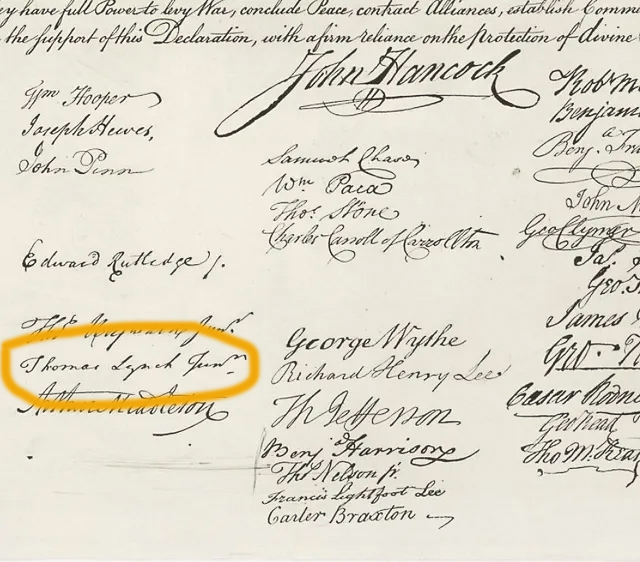 have full Power to levy War, conclude Peace, contract Alliances, establish
the support of this Declaration, with a firm reliance on the Protection of divine
John Hancock
Wm Hooper
Joseph Hewes,
John Penn
Edward Rutledge /.
Thos Heyward Junr.
Thomas Lynch Junr.
Arthur Middleton
Samuel Chase
Wm. Paca
Thos. Stone
Charles Carroll of Carrollton
George Wythe
Richard Henry Lee
Th Jefferson
Benja Harrison
Thos Nelson jr.
Francis Lightfoot Lee
Carter Braxton
Robt
Benj.
John
Geo Clymer
Ja.
Geo.
James
Geo.
Caesar
Geo Read
Tho M: